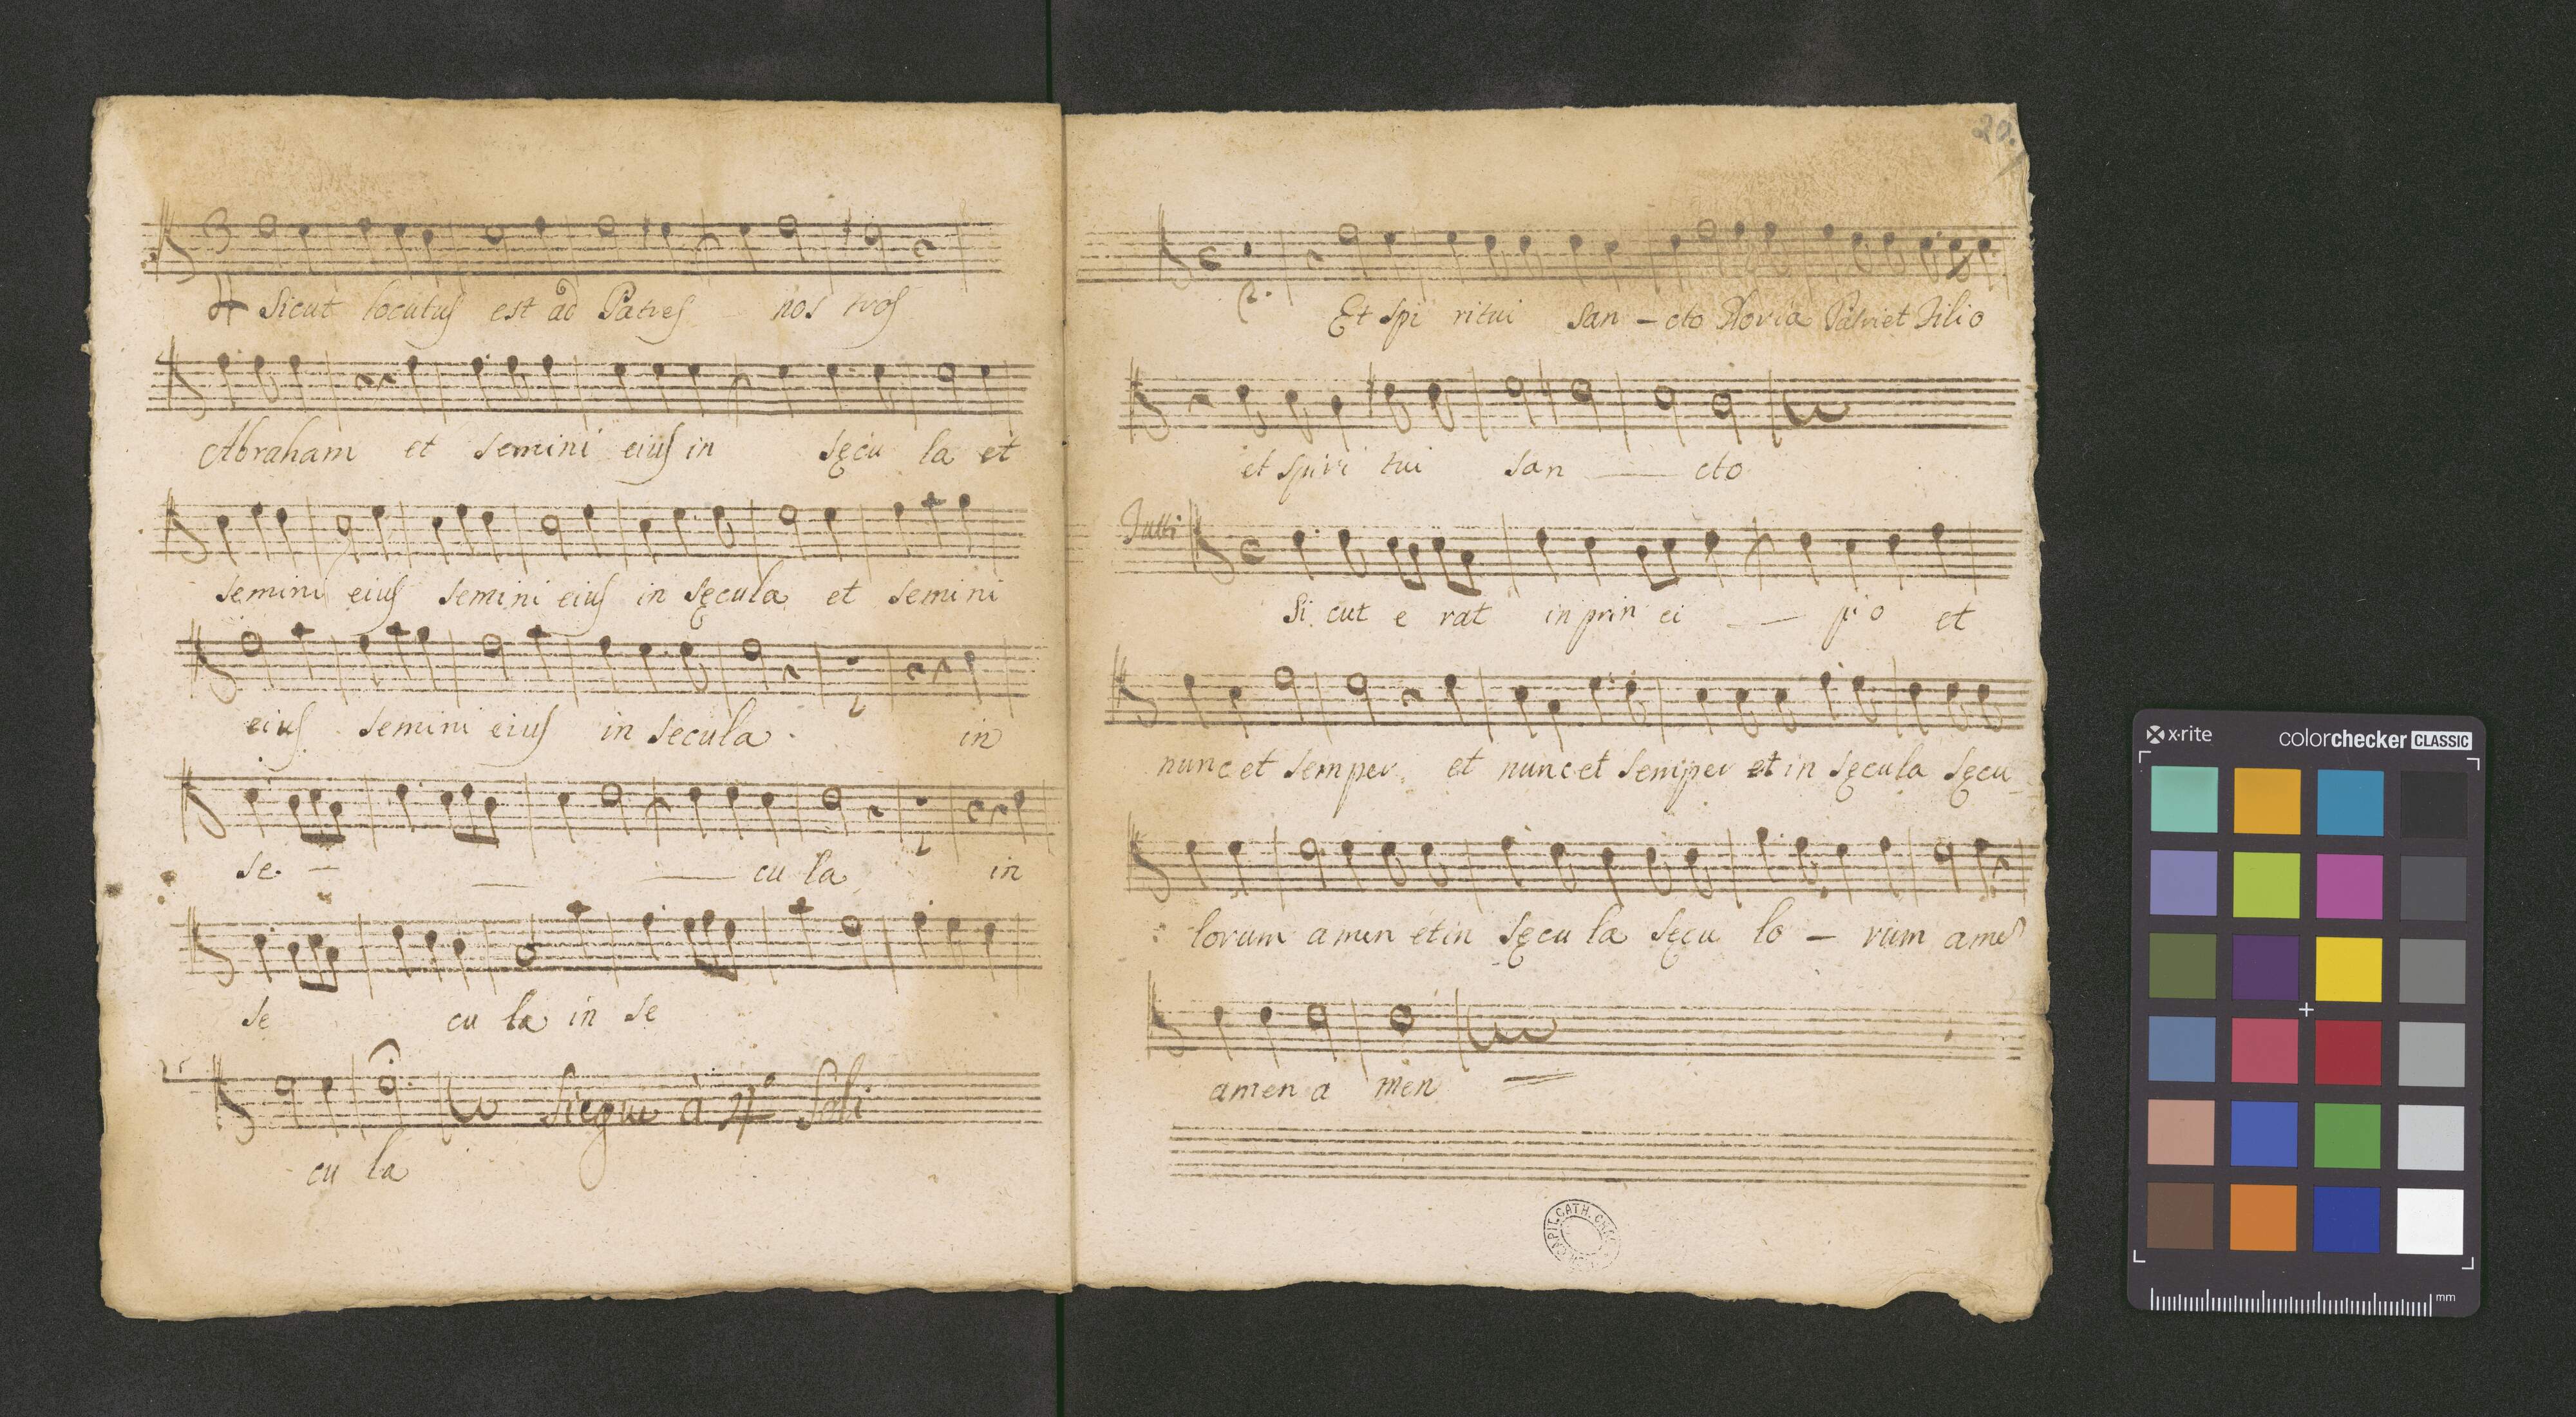 Sicut locutus est ad Patres nos tros
Abraham et semini eius in sęcu la et
semini eius semini eius in sęcula et semini
eius semini eius in secula in
se cu la in
se cu la in se
Siegue à 4º Soli
cu la
20.
2.
Et spi ritui San - cto Gloria Patri et Filio
et spiri tui san cto
Tutti
Si cut e rat in prin ci - - pio et
nunc et semper et nunc et semper et in sęcula sęcu
lorum amen et in sęcu la sęcu lo - rum amen
amen a men
CAPIT. CATH.
x·rite colorchecker CLASSIC
mm